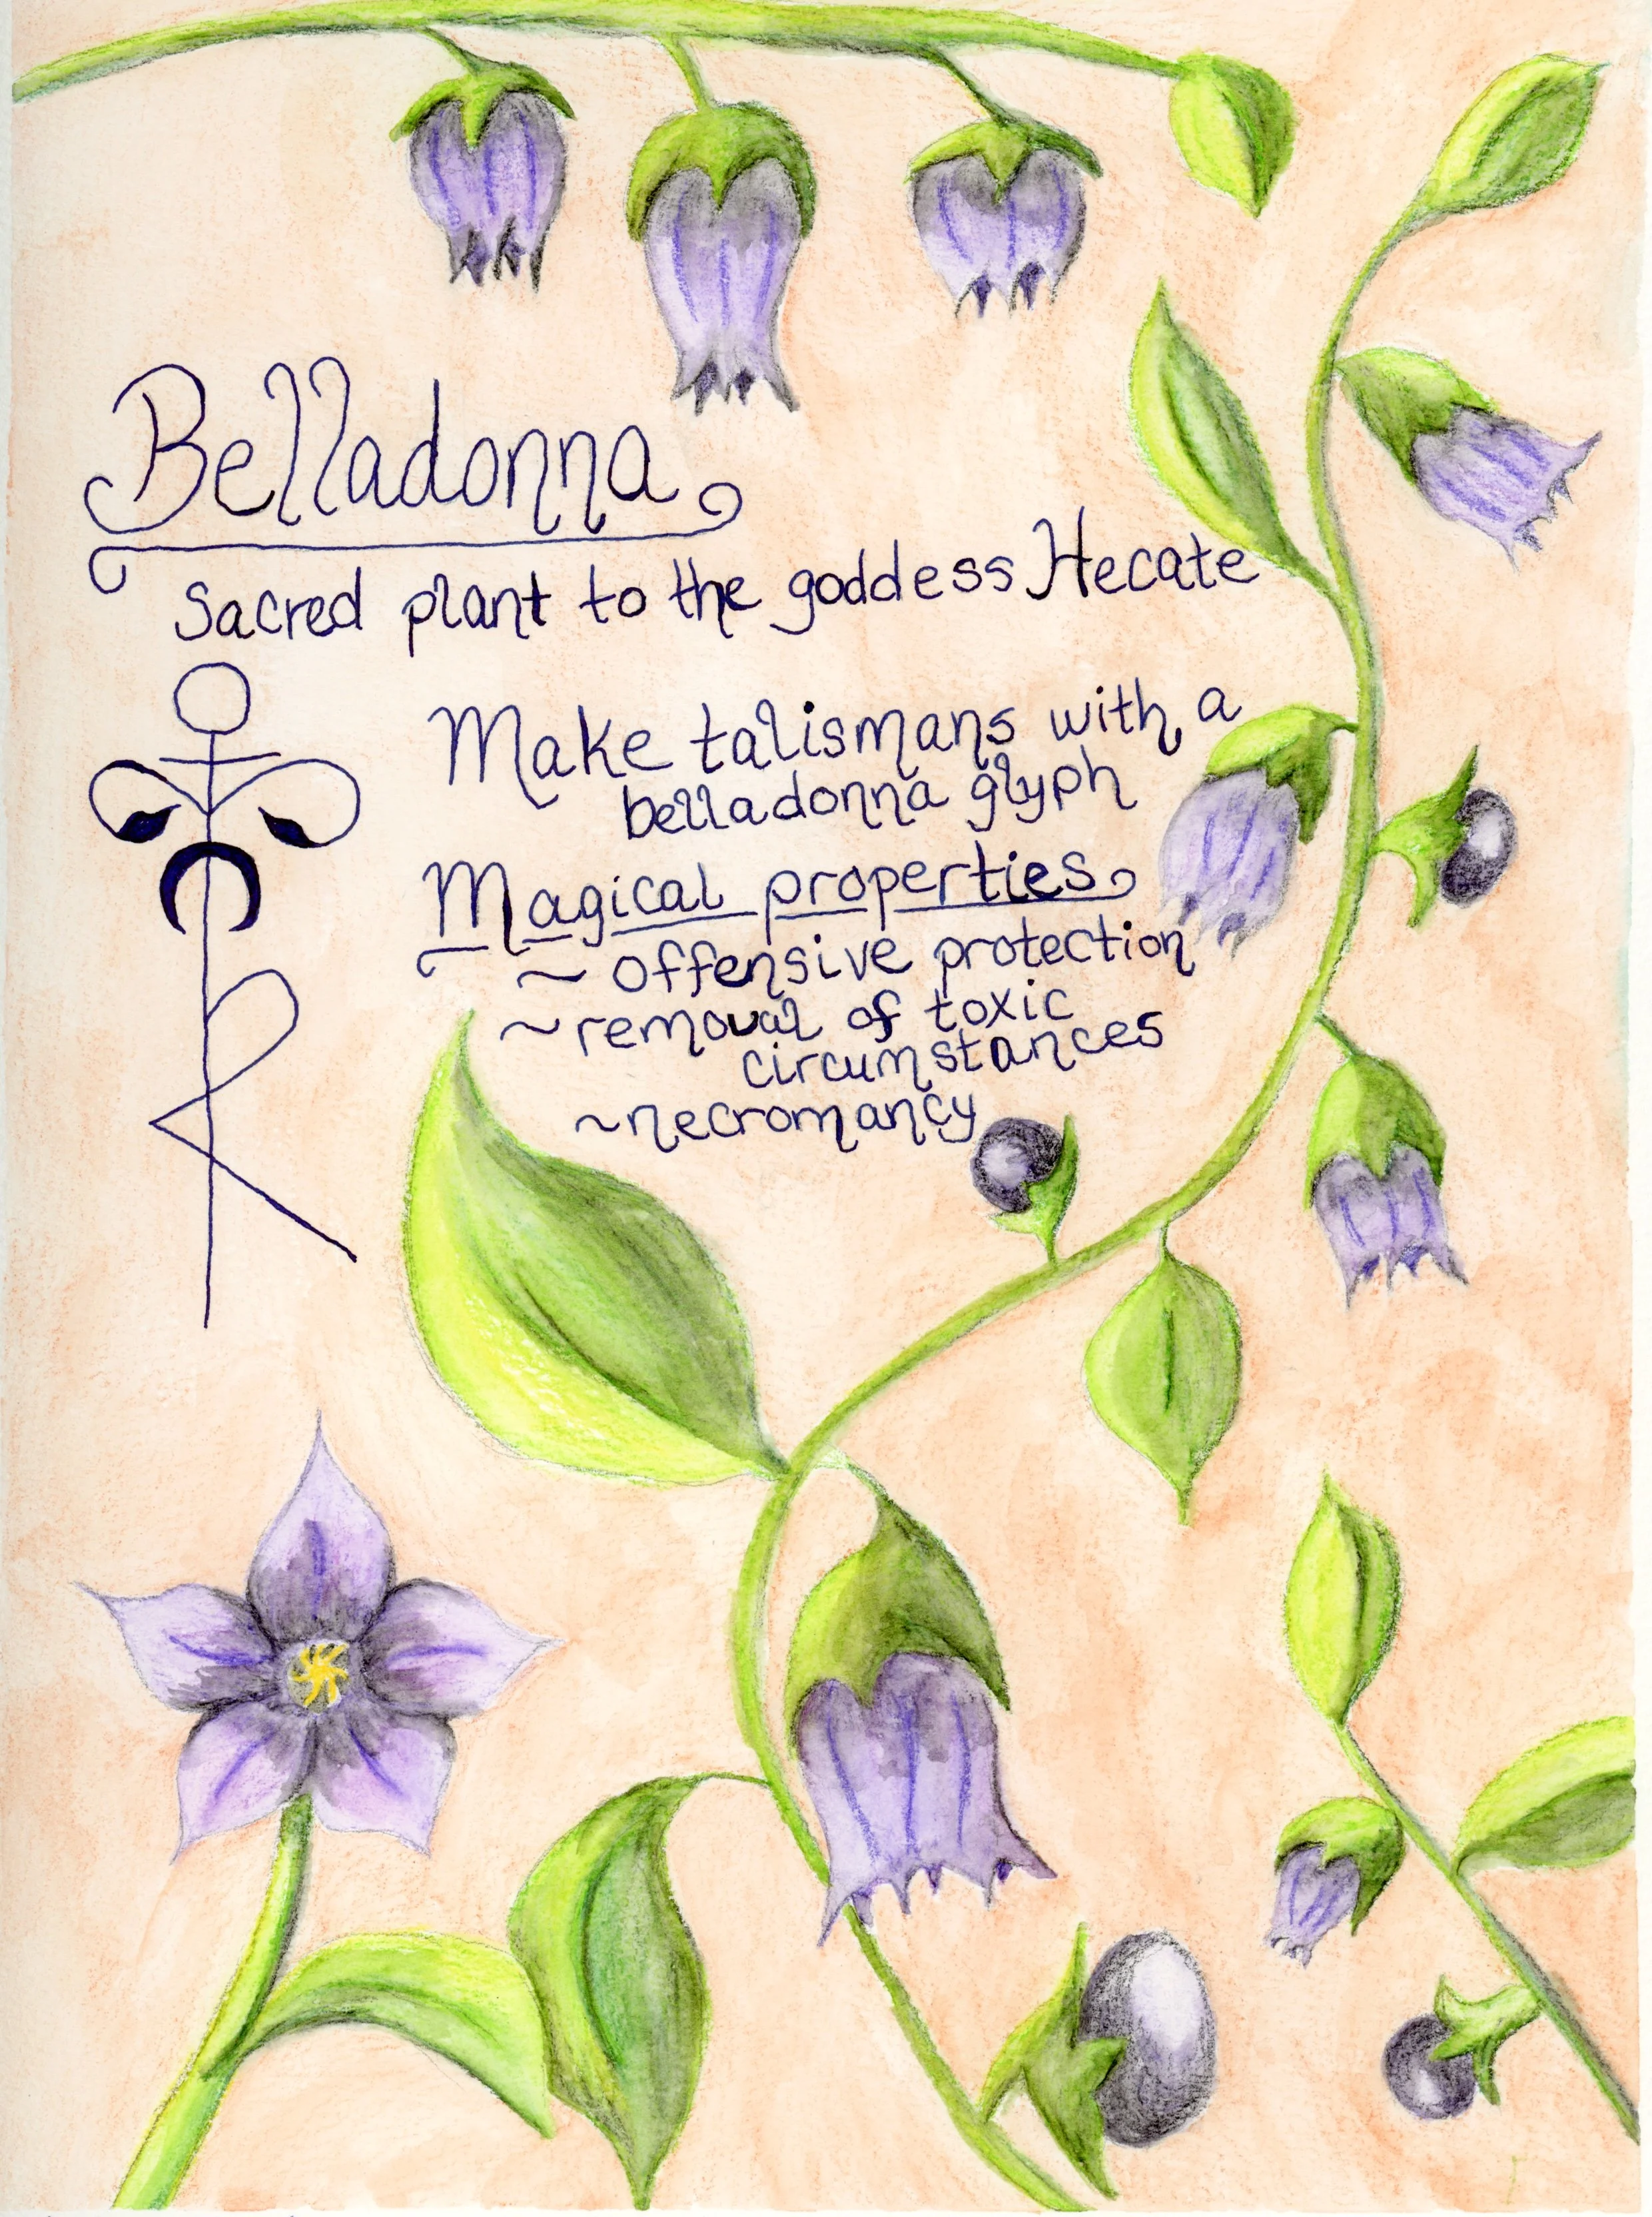 Belladonna
Sacred plant to the goddess Hecate
Make talismans with a
belladonna glyph
Magical properties
~ offensive protection
~ removal of toxic
circumstances
~ necromancy